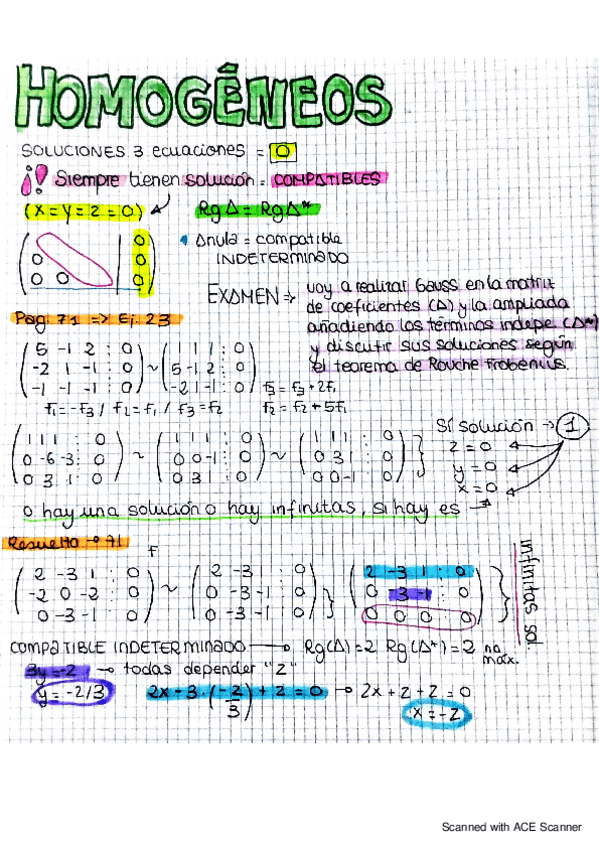 HOMOGÊNEOS
SOLUCIONES 3 ecuaciones = 0
¡! Siempre tienen solución = COMPATIBLES
(X = Y = Z = 0) RgA = RgA*
0
0 0
0 0 0
Anula = compatible
INDETERMINADO
EXAMEN => voy a realizar Gauss en la matriz
de coeficientes (A) y la ampliada
añadiendo los términos indepe. (A*)
y discutir sus soluciones según
el teorema de Rouche Frobenius.
Pag. 71 => Ej. 23
( 5 -1 2 : 0 ) ( 1 1 1 : 0 )
( -2 1 -1 : 0 ) ~ ( 5 -1 2 : 0 )
( -1 -1 -1 : 0 ) ( -2 1 -1 : 0 ) f3 = f3 + 2f1
f1 = -f3 / f2 = f1 / f3 = f2 f2 = f2 + 5f1
( 1 1 1 : 0 ) ( 1 1 1 : 0 ) ( 1 1 1 : 0 )
( 0 -6 -3 : 0 ) ~ ( 0 0 -1 : 0 ) ~ ( 0 3 1 : 0 )
( 0 3 1 : 0 ) ( 0 3 1 : 0 ) ( 0 0 -1 : 0 )
Sí solución -> 1
z = 0
y = 0
x = 0
o hay una solución o hay infinitas, si hay es
Resuelto -> 71
F
( 2 -3 1 : 0 ) ( 2 -3 1 : 0 ) ( 2 -3 1 : 0 )
( -2 0 -2 : 0 ) ~ ( 0 -3 -1 : 0 ) ( 0 -3 -1 : 0 )
( 0 -3 -1 : 0 ) ( 0 -3 -1 : 0 ) ( 0 0 0 0 )
infinitas sol.
COMPATIBLE INDETERMINADO -> Rg(A) = 2 Rg(A*) = 2 no máx.
3y = -z -> todas depender "z"
y = -z/3 2x - 3 · (-z/3) + z = 0 -> 2x + z + z = 0
x = -z
Scanned with ACE Scanner